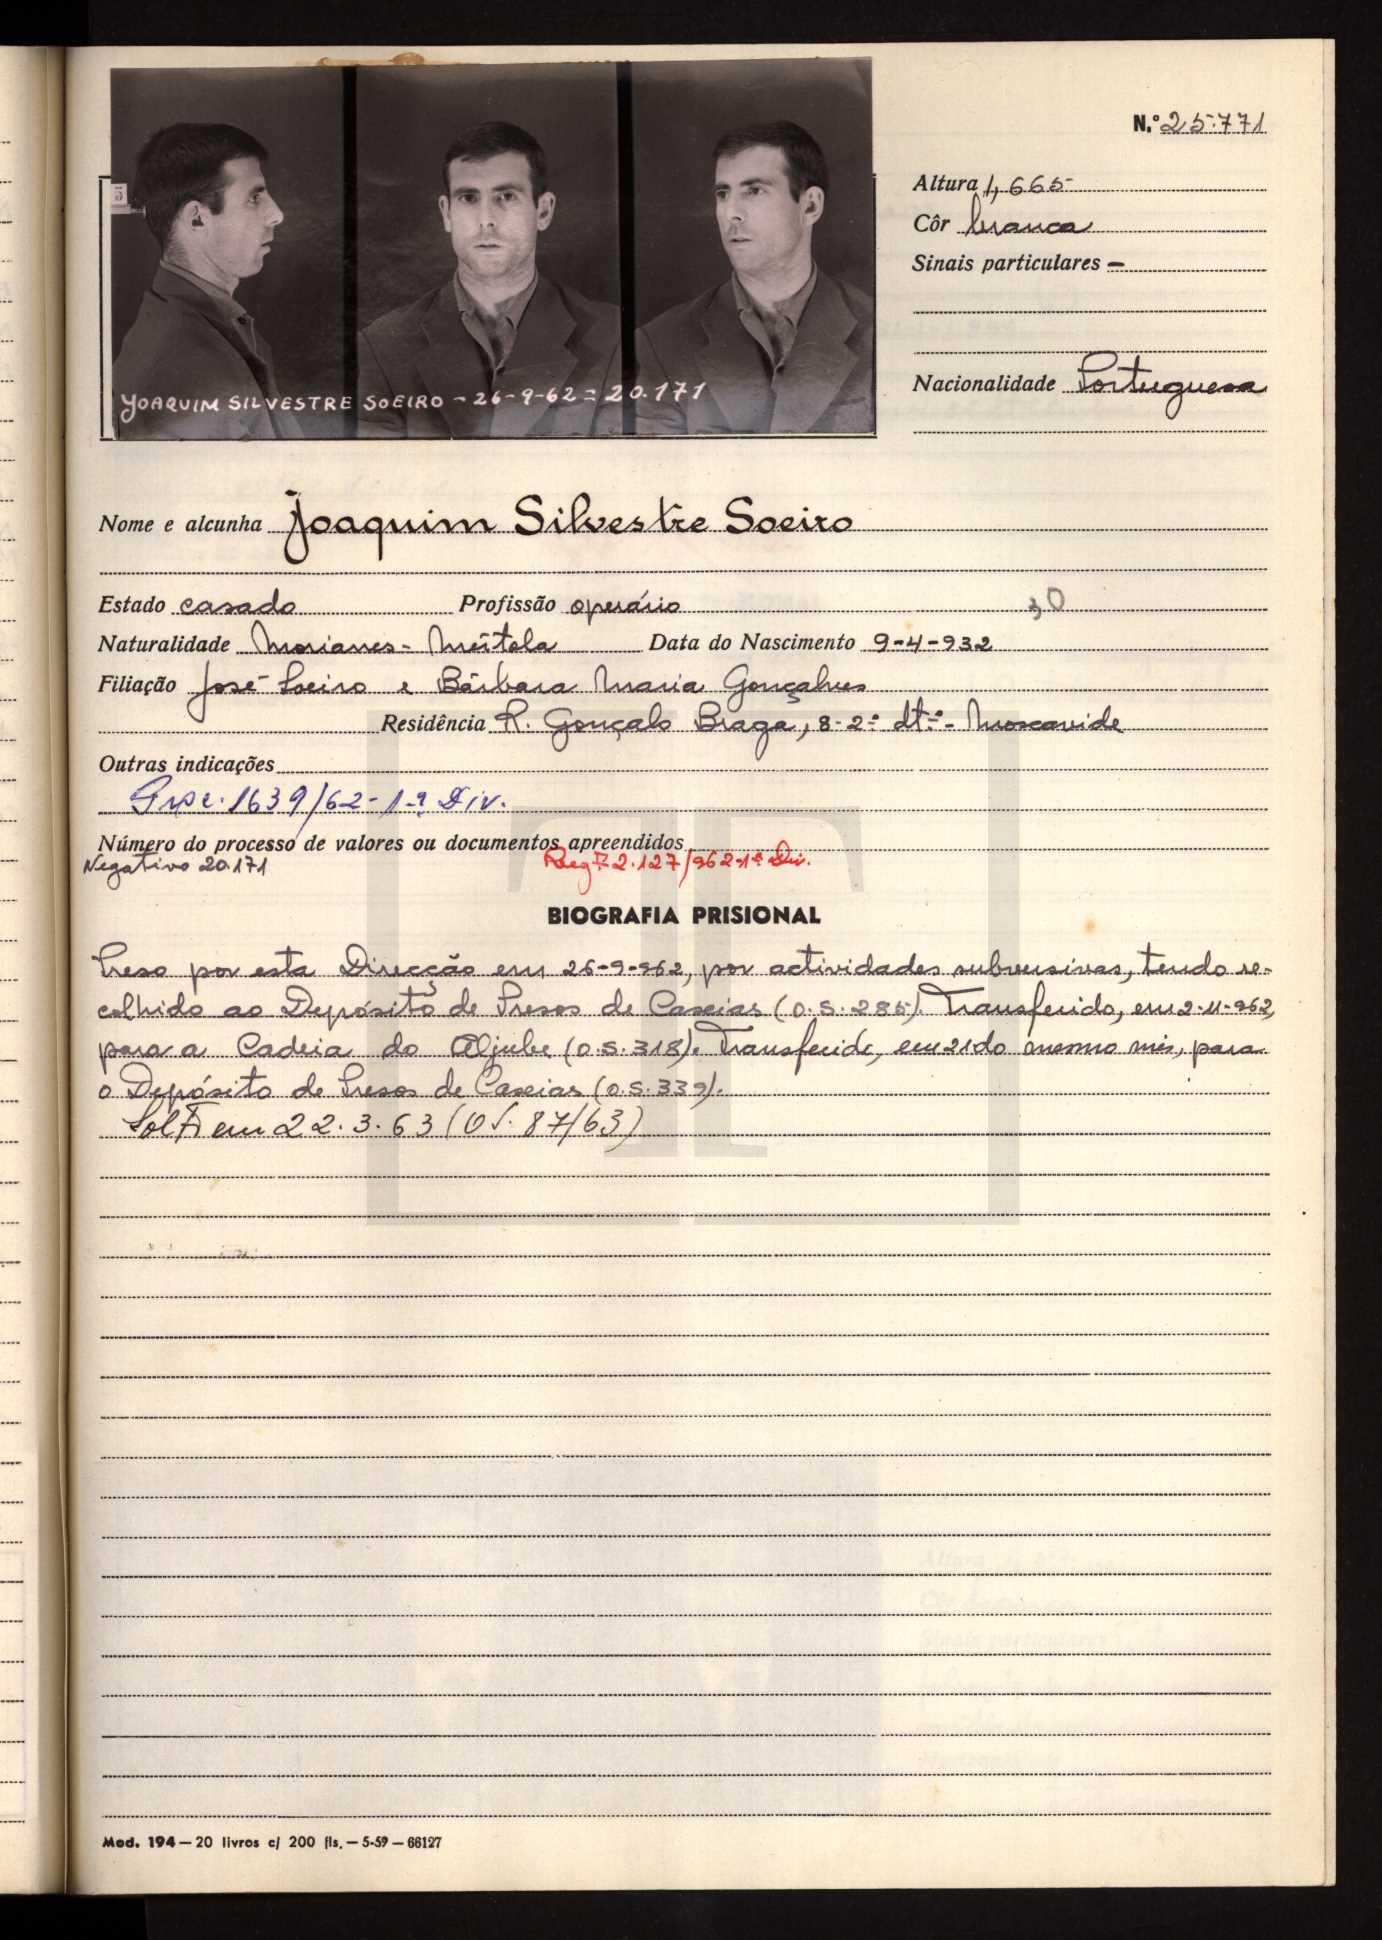 N.º 25.771
Altura 1,665
Côr branca
Sinais particulares —
Nacionalidade Portuguesa
3
JOAQUIM SILVESTRE SOEIRO - 26-9-62 = 20.171
Nome e alcunha Joaquim Silvestre Soeiro
Estado casado Profissão operário 30
Naturalidade Morianes - Mértola Data do Nascimento 9-4-932
Filiação José Soeiro e Bárbara Maria Gonçalves
Residência R. Gonçalo Braga, 8-2.º dt.º - Moscavide
Outras indicações
Proc. 1639/62 - 1.ª Div.
Número do processo de valores ou documentos apreendidos
Negativo 20.171 Reg.º 2.127/962-1.ª Div.
BIOGRAFIA PRISIONAL
Preso por esta Direcção em 26-9-962, por actividades subversivas, tendo re-
colhido ao Depósito de Presos de Caxias (O.S. 285). Transferido, em 2-11-962,
para a Cadeia do Aljube (O.S. 318). Transferido, em 21 do mesmo mês, para
o Depósito de Presos de Caxias (O.S. 339).
Solto em 22.3.63 (OS. 87/63)
Mod. 194 — 20 livros c/ 200 fls. — 5-59 — 66127